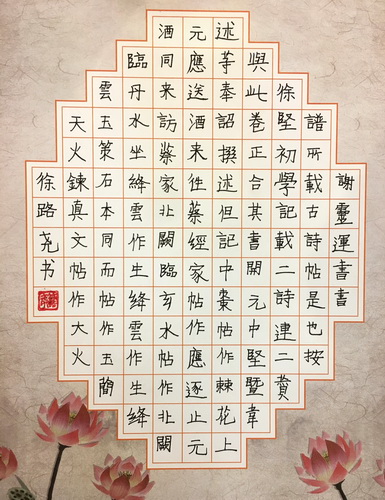 謝靈運書書
譜所載古詩帖是也按
徐堅初學記載二詩連二賛
與此卷正合其書開元中堅暨韋
述等奉詔撰述但記中棗帖作棘花上
元應送酒来往蔡經家帖作應逐止元
酒同来訪蔡家北闕臨玄水帖作北闕
臨丹水坐絳雲作生絳雲作生絳
雲玉策石本同而帖作玉簡
天火鍊真文帖作大火
徐路尧书